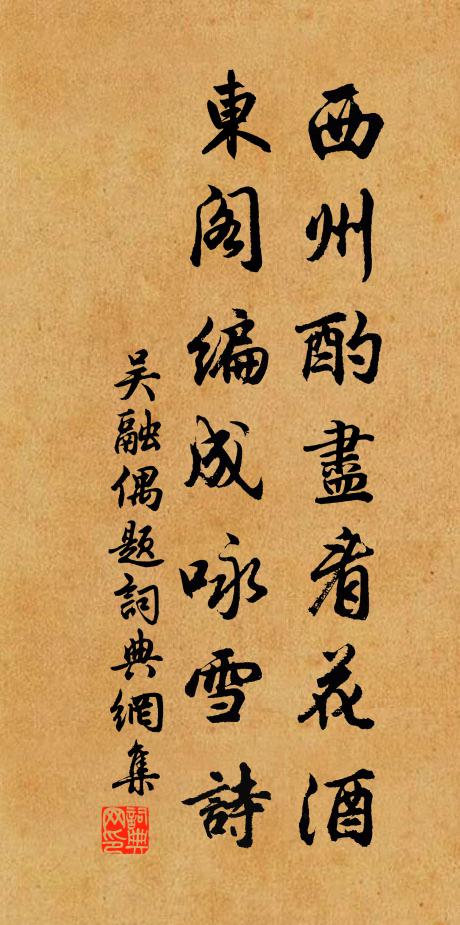 西州酌盡看花酒
東阁編成咏雪詩
吴融偶题詞典網集
詞典网印